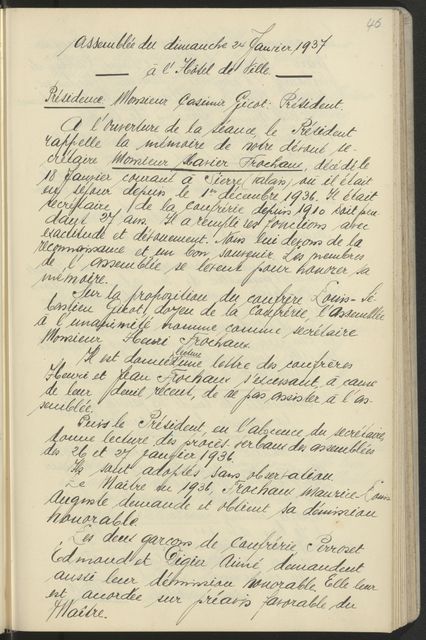 45
Assemblée du dimanche 24 Janvier 1937
à l'Hôtel de Ville
Présidence Monsieur Casimir Gicot: Président.
A l'ouverture de la séance, le Président
rappelle la mémoire de notre dévoué se-
crétaire Monsieur Xavier Frochaux, décédé le
18 Janvier courant à Sierre (Valais) où il était
en séjour depuis le 1er décembre 1936. Il était
secrétaire de la confrérie depuis 1910 soit pen
dant 27 ans. Il a rempli ses fonctions avec
exactitude et dévouement. Nous lui devons de la
reconnaissance et un bon souvenir. Les membres
de l'assemblée se lèvent pour honorer sa
mémoire.
Sur la proposition du confrère Louis-Sé-
bastien Gicot, doyen de la Confrérie, l'assemblée
à l'unanimité nomme comme secrétaire
Monsieur Henri Frochaux.
Il est donné lecture d'une lettre des confrères
Henri et Jean Frochaux s'excusant, à cause
de leur deuil récent, de ne pas assister à l'as-
semblée.
Puis le Président, en l'absence du secrétaire,
donne lecture des procès-verbaux des assemblées
des 26 et 27 janvier 1936.
Ils sont adoptés sans observation.
Le Maître en 1936, Frochaux Maurice Louis
Auguste demande et obtient sa démission
honorable.
Les deux garçons de confrérie, Perroset
Edmond et Digier Aimé, demandent
aussi leur démission honorable. Elle leur
est accordée sur préavis favorable du
Maître.